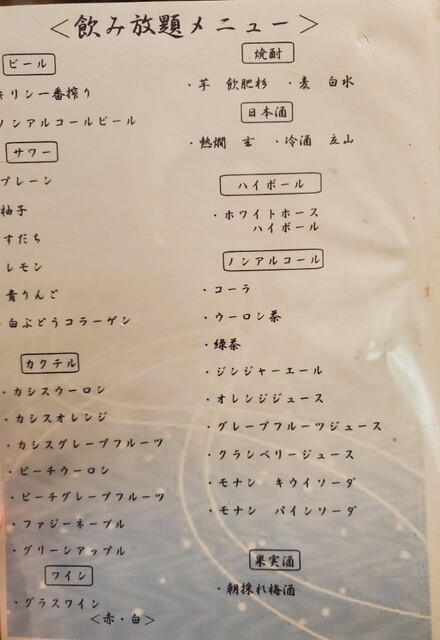 ＜飲み放題メニュー＞
ビール
キリン一番搾り
ノンアルコールビール
サワー
プレーン
柚子
すだち
レモン
青りんご
・白ぶどうコラーゲン
カクテル
・カシスウーロン
・カシスオレンジ
・カシスグレープフルーツ
・ピーチウーロン
・ピーチグレープフルーツ
・ファジーネーブル
・グリーンアップル
ワイン
・グラスワイン
＜赤・白＞
焼酎
・芋 飫肥杉 ・麦 白水
日本酒
・熱燗 玄 ・冷酒 立山
ハイボール
・ホワイトホース
ハイボール
ノンアルコール
・コーラ
・ウーロン茶
・緑茶
・ジンジャーエール
・オレンジジュース
・グレープフルーツジュース
・クランベリージュース
・モナン キウイソーダ
・モナン パインソーダ
果実酒
・朝採れ梅酒